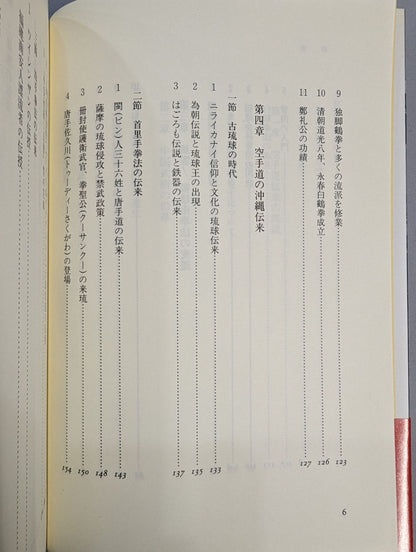 9 独脚鶴拳と多くの流派を修業……123
10 清朝道光八年、永春白鶴拳成立……126
11 鄭礼公の功績……127
第四章 空手道の沖縄伝来
一節 古琉球の時代
1 ニライカナイ信仰と文化の琉球伝来……133
2 為朝伝説と琉球王の出現……135
3 はごろも伝説と鉄器の伝来……137
二節 首里手拳法の伝来
1 閩(ビン)人三十六姓と唐手道の伝来……143
2 薩摩の琉球侵攻と禁武政策……148
3 冊封使護衛武官、拳聖公(クーサンクー)の来琉……150
4 唐手佐久川(トゥーディーさくがわ)の登場……154
6